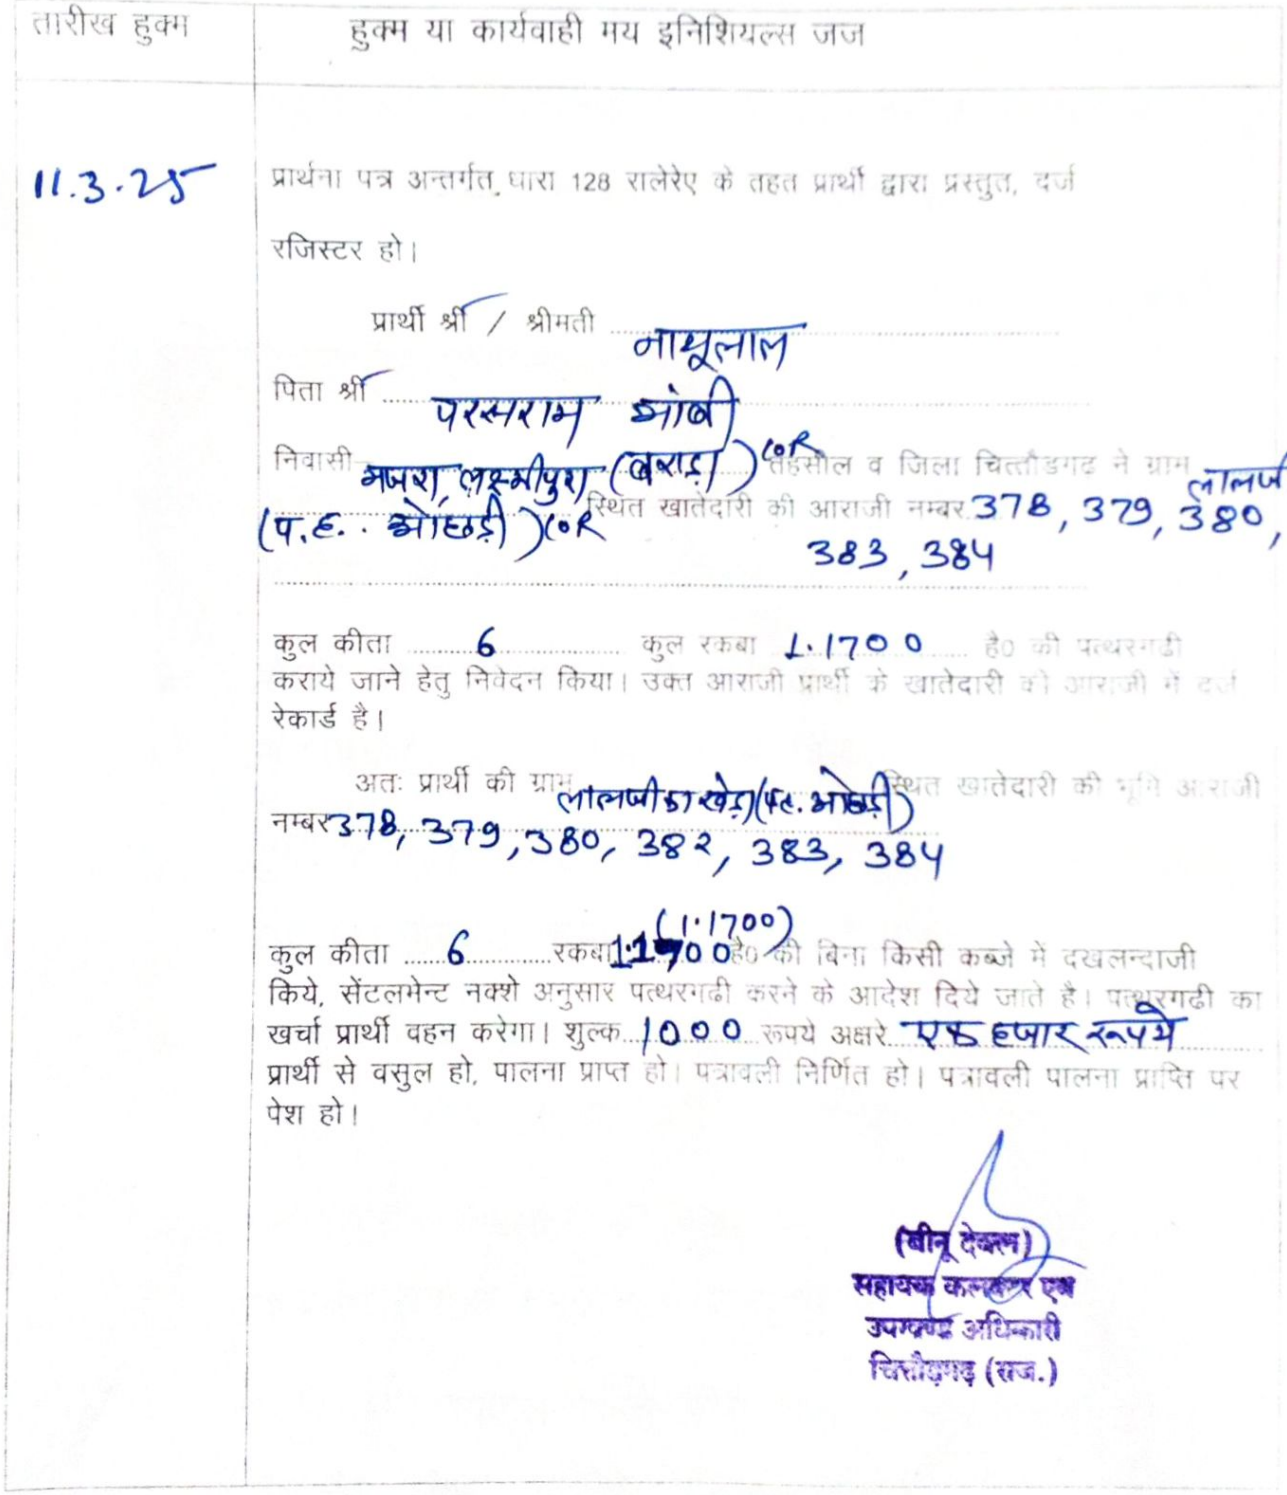 तारीख हुक्म
हुक्म या कार्यवाही मय इनिशियल्स जज
11.3.25
प्रार्थना पत्र अन्तर्गत धारा 128 रालेरेए के तहत प्रार्थी द्वारा प्रस्तुत, दर्ज
रजिस्टर हो।
प्रार्थी श्री / श्रीमती नाथूलाल
पिता श्री परसराम भांबी
निवासी मजरा, लक्ष्मीपुरा (बराड़ा) तहसील व जिला चित्तौडगढ ने ग्राम लालजी
(प.ह. ओछड़ी) स्थित खातेदारी की आराजी नम्बर 378, 379, 380,
383, 384
कुल कीता 6 कुल रकबा 1.1700 है0 की पत्थरगढी
कराये जाने हेतु निवेदन किया। उक्त आराजी प्रार्थी के खातेदारी की आराजी में दर्ज
रेकार्ड है।
अतः प्रार्थी की ग्राम लालजी का खेड़ा (प.ह. ओछड़ी) स्थित खातेदारी की भूमि आराजी
नम्बर 378, 379, 380, 382, 383, 384
(1.1700)
कुल कीता 6 रकबा 1.1700 है0 की बिना किसी कब्जे में दखलन्दाजी
किये, सेंटलमेन्ट नक्शे अनुसार पत्थरगढी करने के आदेश दिये जाते है। पत्थरगढी का
खर्चा प्रार्थी वहन करेगा। शुल्क 1000 रूपये अक्षरे एक हजार रूपये
प्रार्थी से वसुल हो, पालना प्राप्त हो। पत्रावली निर्णित हो। पत्रावली पालना प्राप्ति पर
पेश हो।
(बीनू देवल)
सहायक कलक्टर एवं
उपखण्ड अधिकारी
चित्तौड़गढ़ (राज.)